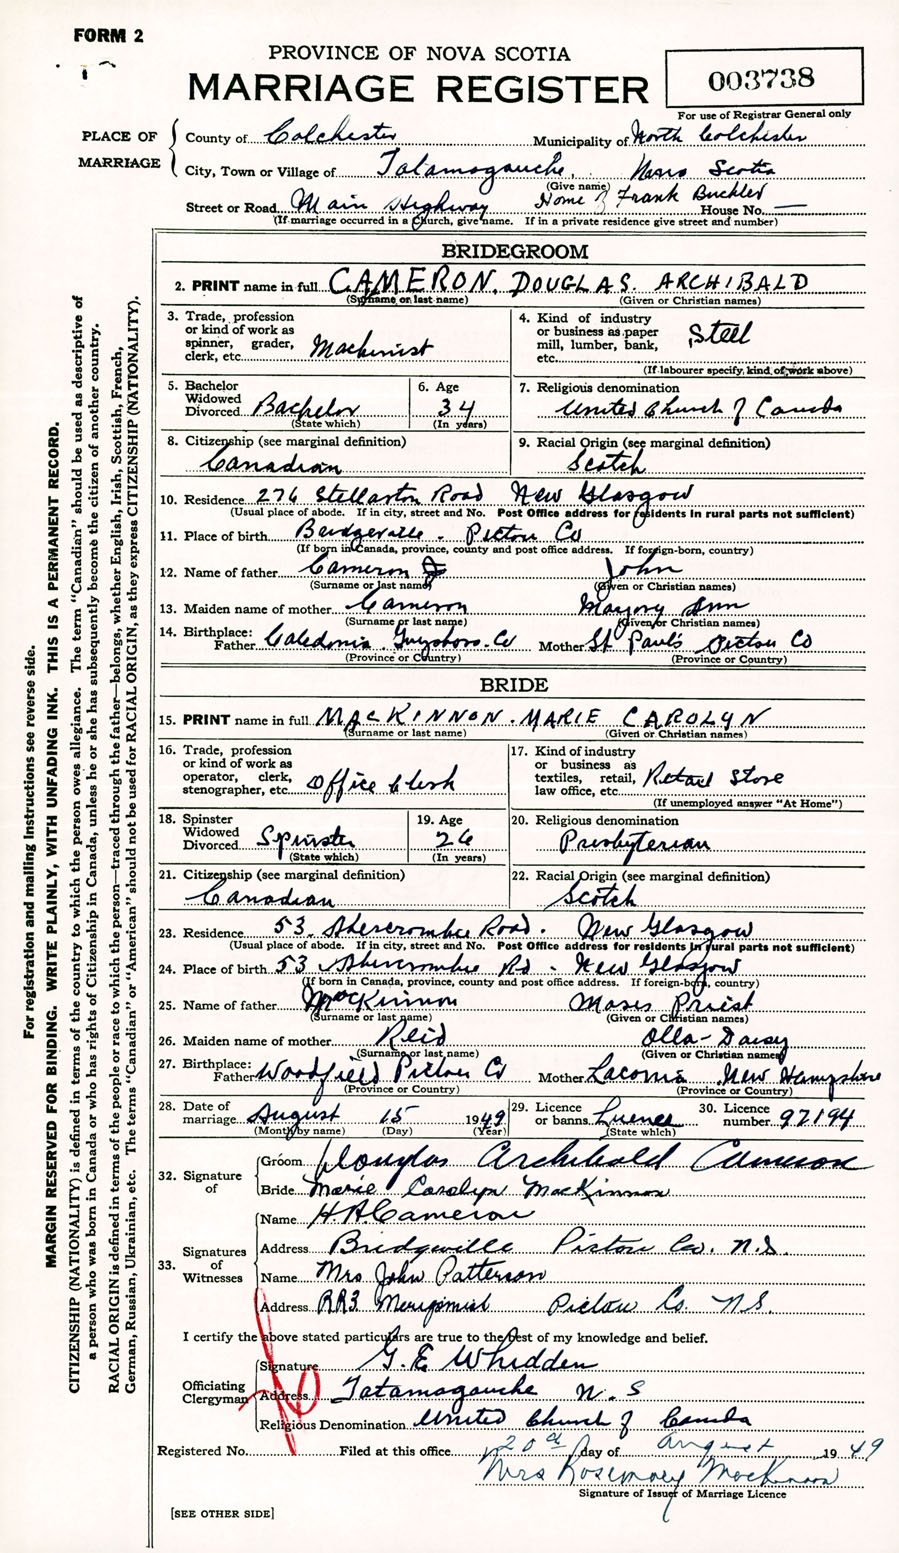 FORM 2
PROVINCE OF NOVA SCOTIA
MARRIAGE REGISTER
003738
For use of Registrar General only
PLACE OF MARRIAGE
County of Colchester Municipality of North Colchester
City, Town or Village of Tatamagouche, Nova Scotia
(Give name)
Street or Road Main Highway Home of Frank Buckler House No. —
(If marriage occurred in a Church, give name. If in a private residence give street and number)
BRIDEGROOM
2. PRINT name in full CAMERON. DOUGLAS. ARCHIBALD
(Surname or last name) (Given or Christian names)
3. Trade, profession or kind of work as spinner, grader, clerk, etc. Machinist
4. Kind of industry or business as paper mill, lumber, bank, etc. Steel
(If labourer specify, kind of work above)
5. Bachelor Widowed Divorced Bachelor
(State which)
6. Age 34
(In years)
7. Religious denomination United Church of Canada
8. Citizenship (see marginal definition) Canadian
9. Racial Origin (see marginal definition) Scotch
10. Residence 276 Stellarton Road New Glasgow
(Usual place of abode. If in city, street and No. Post Office address for residents in rural parts not sufficient)
11. Place of birth Bridgeville - Pictou Co
(If born in Canada, province, county and post office address. If foreign-born, country)
12. Name of father Cameron John
(Surname or last name) (Given or Christian names)
13. Maiden name of mother Cameron Marjory Ann
(Surname or last name) (Given or Christian names)
14. Birthplace: Father Caledonia Guysboro. Co Mother St Paul's Pictou Co
(Province or Country) (Province or Country)
BRIDE
15. PRINT name in full MACKINNON. MARIE CAROLYN
(Surname or last name) (Given or Christian names)
16. Trade, profession or kind of work as operator, clerk, stenographer, etc. Office Clerk
17. Kind of industry or business as textiles, retail, law office, etc. Retail Store
(If unemployed answer "At Home")
18. Spinster Widowed Divorced Spinster
(State which)
19. Age 26
(In years)
20. Religious denomination Presbyterian
21. Citizenship (see marginal definition) Canadian
22. Racial Origin (see marginal definition) Scotch
23. Residence 53 Abercrombie Road. New Glasgow
(Usual place of abode. If in city, street and No. Post Office address for residents in rural parts not sufficient)
24. Place of birth 53 Abercrombie Rd - New Glasgow
(If born in Canada, province, county and post office address. If foreign-born, country)
25. Name of father MacKinnon Moses Priest
(Surname or last name) (Given or Christian names)
26. Maiden name of mother Reid Olla-Daisy
(Surname or last name) (Given or Christian names)
27. Birthplace: Father Woodfield Pictou Co Mother Laconia New Hampshire
(Province or Country) (Province or Country)
28. Date of marriage August 15 1949
(Month by name) (Day) (Year)
29. Licence or banns. License
(State which)
30. Licence number 97194
32. Signature of
Groom Douglas Archibald Cameron
Bride Marie Carolyn MacKinnon
33. Signatures of Witnesses
Name H.A. Cameron
Address Bridgville Pictou Co. N.S.
Name Mrs John Patterson
Address RR3 Merigomish Pictou Co. N.S.
I certify the above stated particulars are true to the best of my knowledge and belief.
Officiating Clergyman
Signature G. E Whidden
Address Tatamagouche N. S
Religious Denomination United Church of Canada
Registered No. Filed at this office 20th day of August 1949
Mrs Rosemary MacKinnon
Signature of Issuer of Marriage Licence
[SEE OTHER SIDE]
For registration and mailing instructions see reverse side.
MARGIN RESERVED FOR BINDING. WRITE PLAINLY, WITH UNFADING INK. THIS IS A PERMANENT RECORD.
CITIZENSHIP (NATIONALITY) is defined in terms of the country to which the person owes allegiance. The term "Canadian" should be used as descriptive of
a person who was born in Canada or who has rights of Citizenship in Canada, unless he or she has subsequently become the citizen of another country.
RACIAL ORIGIN is defined in terms of the people or race to which the person—traced through the father—belongs, whether English, Irish, Scottish, French,
German, Russian, Ukrainian, etc. The terms "Canadian" or "American" should not be used for RACIAL ORIGIN, as they express CITIZENSHIP (NATIONALITY).